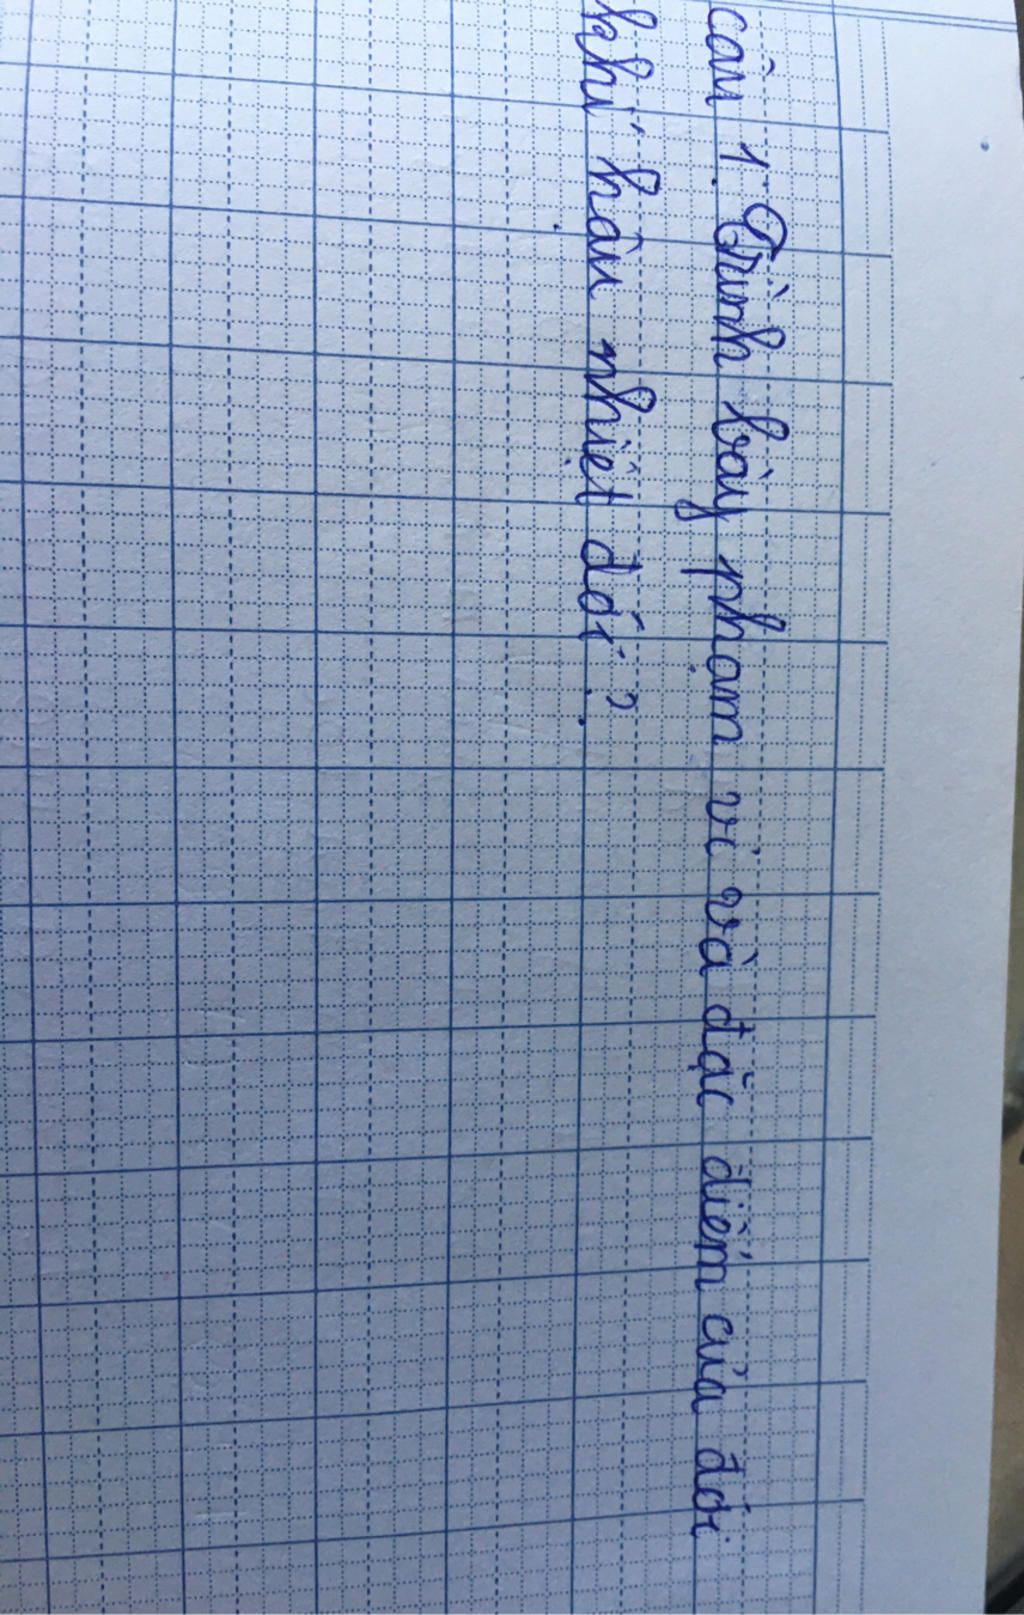 câu 1. Trình bày phạm vi và đặc điểm của đới
khí hậu nhiệt đới?.